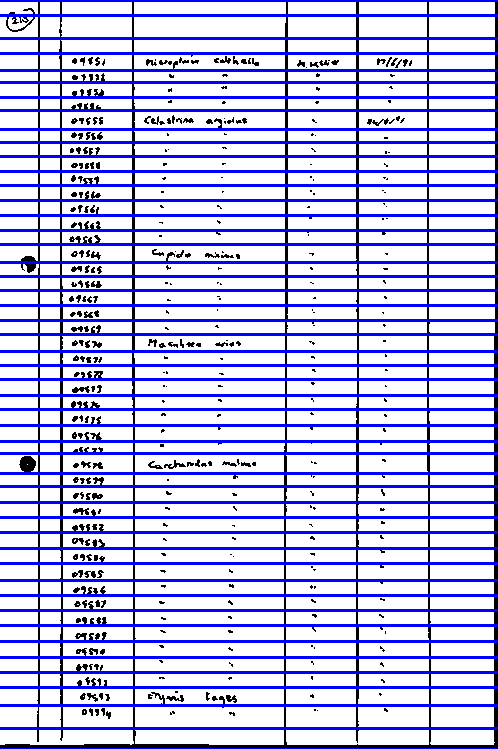 210
09551 M. 17/6/91
09552 " " " "
09553 " " " "
09554 " " " "
09555 Celastrina argiolus "
09556 " " " "
09557 " " " "
09558 " " " "
09559 " " " "
09560 " " " "
09561 " " " "
09562 " " " "
09563 " " " "
09564 Cupido minimus " "
09565 " " " "
09566 " " " "
09567 " " " "
09568 " " " "
09569 " " " "
09570 Maculinea arion " "
09571 " " " "
09572 " " " "
09573 " " " "
09574 " " " "
09575 " " " "
09576 " " " "
09577 " " " "
09578 " "
09579 " " " "
09580 " " " "
09581 " " " "
09582 " " " "
09583 " " " "
09584 " " " "
09585 " " " "
09586 " " " "
09587 " " " "
09588 " " " "
09589 " " " "
09590 " " " "
09591 " " " "
09592 " " " "
09593 Erynnis tages " "
09594 " " " "